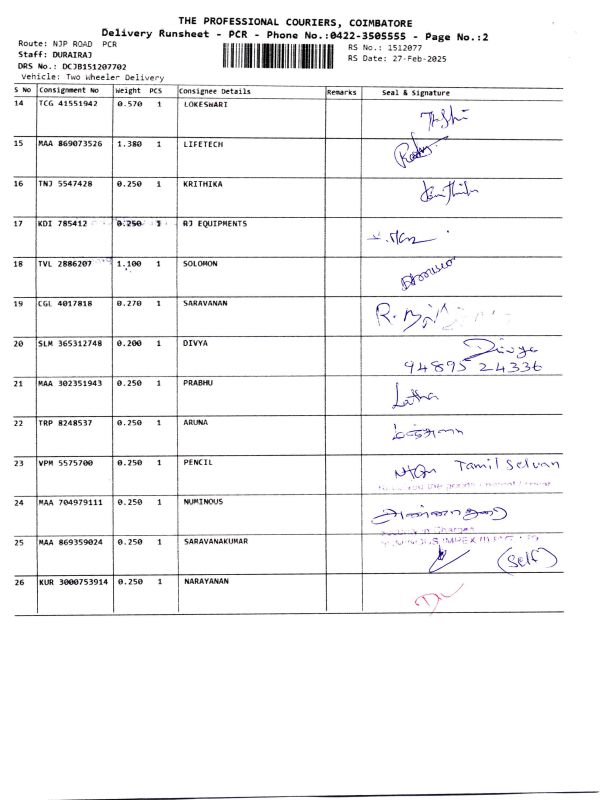 THE PROFESSIONAL COURIERS, COIMBATORE
Delivery Runsheet - PCR - Phone No.:0422-3505555 - Page No.:2
Route: NJP ROAD PCR
RS No.: 1512077
Staff: DURAIRAJ
RS Date: 27-Feb-2025
DRS No.: DCJB151207702
Vehicle: Two Wheeler Delivery
S No Consignment No Weight PCS Consignee Details Remarks Seal & Signature
14 TCG 41551942 0.570 1 LOKESWARI
15 MAA 869073526 1.380 1 LIFETECH
16 TNJ 5547428 0.250 1 KRITHIKA
17 KDI 785412 0.250 1 RJ EQUIPMENTS
18 TVL 2886207 1.100 1 SOLOMON
19 CGL 4017818 0.270 1 SARAVANAN
20 SLM 365312748 0.200 1 DIVYA
Divya
94895 24336
21 MAA 302351943 0.250 1 PRABHU
Latha
22 TRP 8248537 0.250 1 ARUNA
23 VPM 5575700 0.250 1 PENCIL
Tamil Selvan
24 MAA 704979111 0.250 1 NUMINOUS
25 MAA 869359024 0.250 1 SARAVANAKUMAR
(Self)
26 KUR 3000753914 0.250 1 NARAYANAN